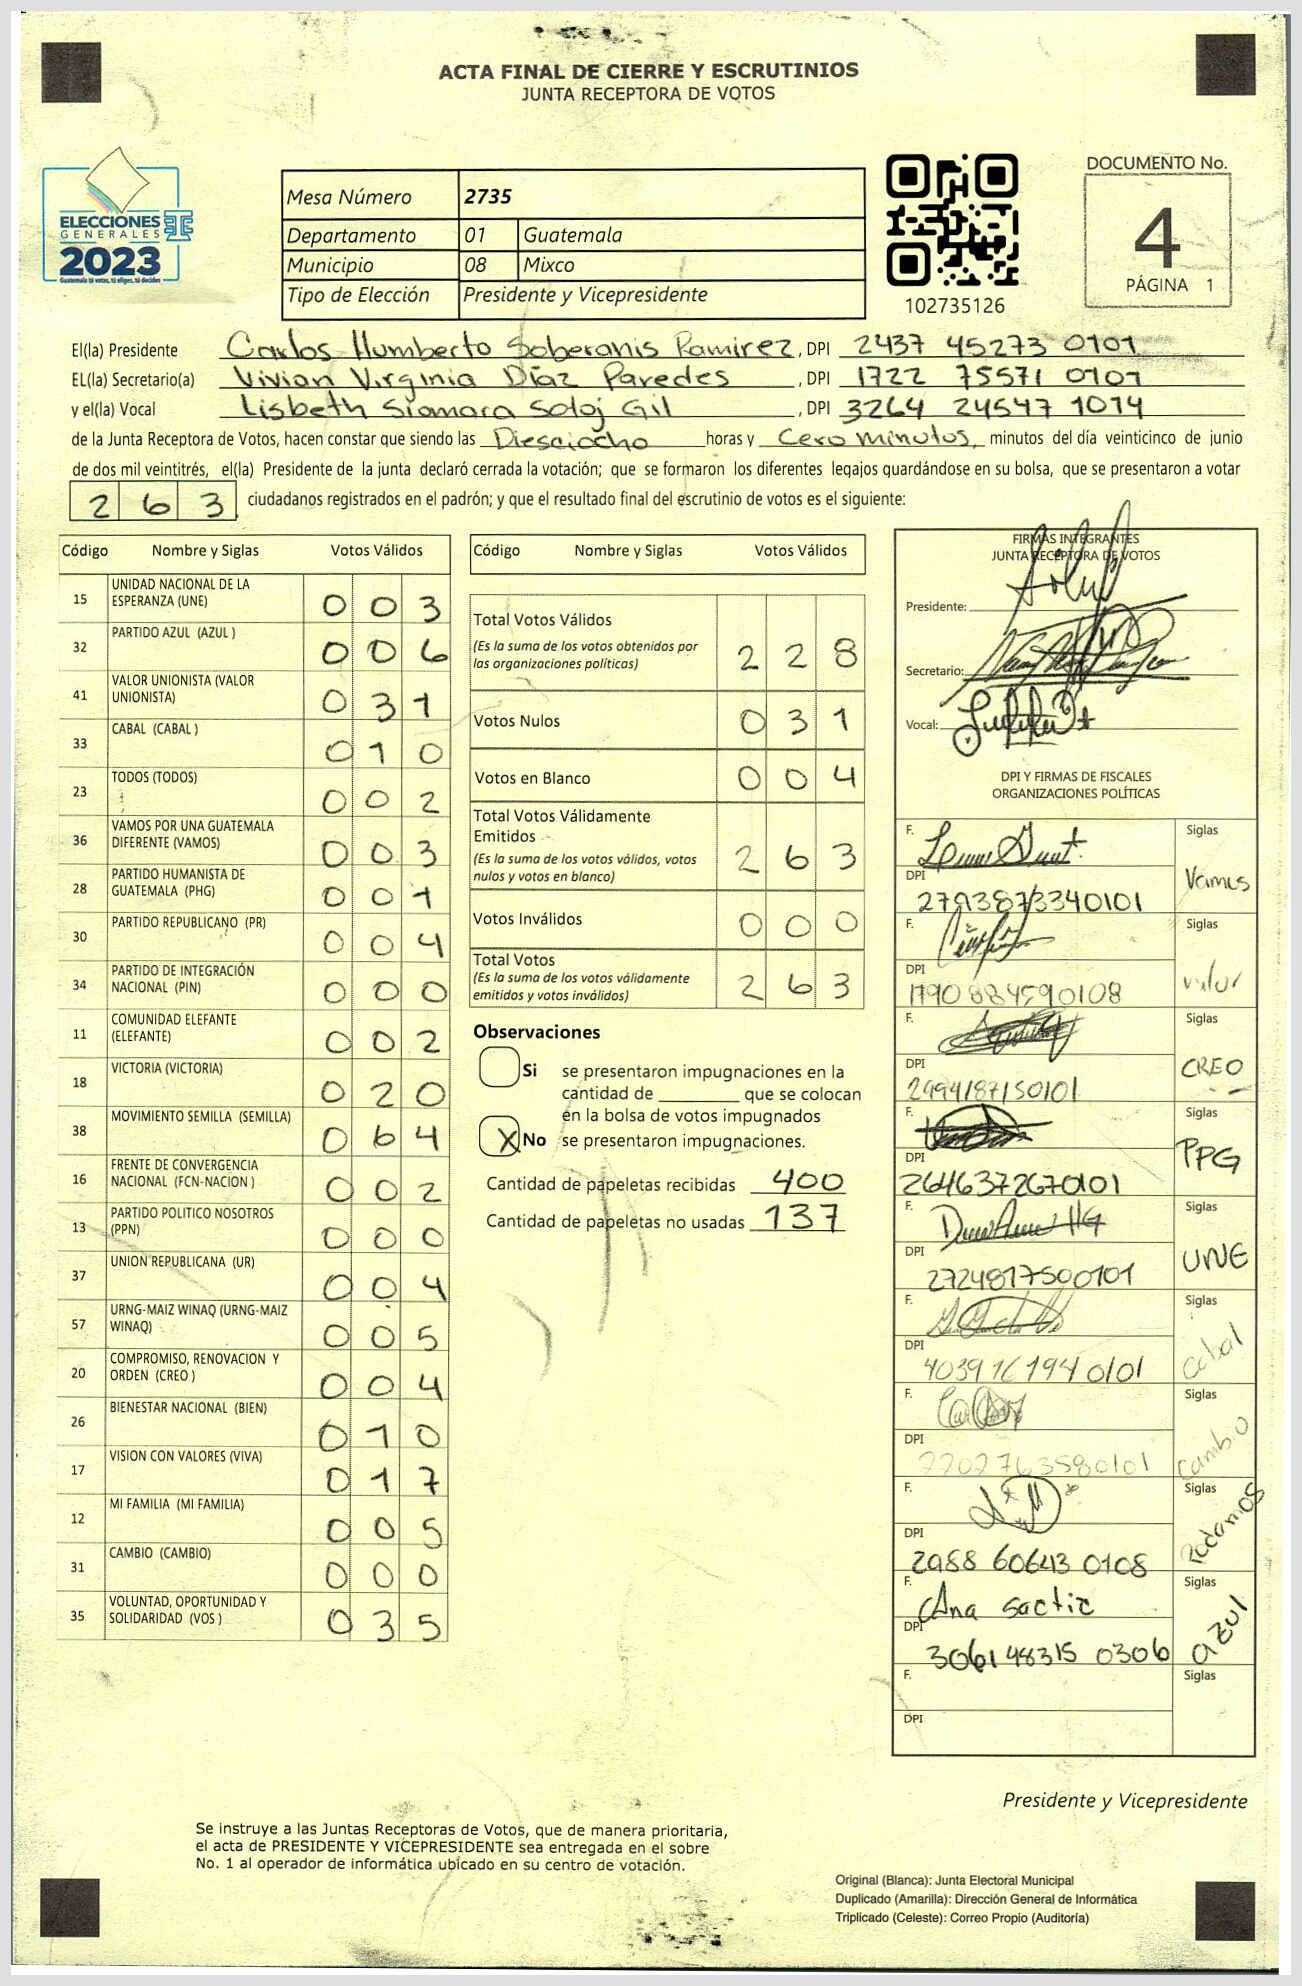 ACTA FINAL DE CIERRE Y ESCRUTINIOS
JUNTA RECEPTORA DE VOTOS
ELECCIONES
GENERALES
2023
Guatemala tú votas, tú eliges, tú decides
Mesa Número 2735
Departamento 01 Guatemala
Municipio 08 Mixco
Tipo de Elección Presidente y Vicepresidente
102735126
DOCUMENTO No.
4
PÁGINA 1
El(la) Presidente Carlos Humberto Soberanis Ramirez, DPI 2437 45273 0101
EL(la) Secretario(a) Vivian Virginia Díaz Paredes, DPI 1722 75571 0101
y el(la) Vocal Lisbeth Siomara Soloj Gil, DPI 3264 24547 1014
de la Junta Receptora de Votos, hacen constar que siendo las Diesciocho horas y Cero minutos, minutos del día veinticinco de junio
de dos mil veintitrés, el(la) Presidente de la junta declaró cerrada la votación; que se formaron los diferentes legajos guardándose en su bolsa, que se presentaron a votar
263 ciudadanos registrados en el padrón; y que el resultado final del escrutinio de votos es el siguiente:
Código Nombre y Siglas Votos Válidos
15 UNIDAD NACIONAL DE LA ESPERANZA (UNE) 003
32 PARTIDO AZUL (AZUL ) 006
41 VALOR UNIONISTA (VALOR UNIONISTA) 031
33 CABAL (CABAL ) 010
23 TODOS (TODOS) 002
36 VAMOS POR UNA GUATEMALA DIFERENTE (VAMOS) 003
28 PARTIDO HUMANISTA DE GUATEMALA (PHG) 001
30 PARTIDO REPUBLICANO (PR) 004
34 PARTIDO DE INTEGRACIÓN NACIONAL (PIN) 000
11 COMUNIDAD ELEFANTE (ELEFANTE) 002
18 VICTORIA (VICTORIA) 020
38 MOVIMIENTO SEMILLA (SEMILLA) 064
16 FRENTE DE CONVERGENCIA NACIONAL (FCN-NACION ) 002
13 PARTIDO POLITICO NOSOTROS (PPN) 000
37 UNION REPUBLICANA (UR) 004
57 URNG-MAIZ WINAQ (URNG-MAIZ WINAQ) 005
20 COMPROMISO, RENOVACION Y ORDEN (CREO ) 004
26 BIENESTAR NACIONAL (BIEN) 010
17 VISION CON VALORES (VIVA) 017
12 MI FAMILIA (MI FAMILIA) 005
31 CAMBIO (CAMBIO) 000
35 VOLUNTAD, OPORTUNIDAD Y SOLIDARIDAD (VOS ) 035
Código Nombre y Siglas Votos Válidos
Total Votos Válidos 228
(Es la suma de los votos obtenidos por
las organizaciones políticas)
Votos Nulos 031
Votos en Blanco 004
Total Votos Válidamente
Emitidos 263
(Es la suma de los votos válidos, votos
nulos y votos en blanco)
Votos Inválidos 000
Total Votos 263
(Es la suma de los votos válidamente
emitidos y votos inválidos)
Observaciones
Si se presentaron impugnaciones en la
cantidad de ________ que se colocan
en la bolsa de votos impugnados
X No se presentaron impugnaciones.
Cantidad de papeletas recibidas 400
Cantidad de papeletas no usadas 137
FIRMAS INTEGRANTES
JUNTA RECEPTORA DE VOTOS
Presidente:
Secretario:
Vocal:
DPI Y FIRMAS DE FISCALES
ORGANIZACIONES POLÍTICAS
F. Siglas Vamos
DPI 2793873340101
F. Siglas valor
DPI 1790884590108
F. Siglas CREO
DPI 2994187150101
F. Siglas PPG
DPI 2646372670101
F. Siglas UNE
DPI 2724817500101
F. Siglas cabal
DPI 4039161940101
F. Siglas cambio
DPI 2202763580101
F. Siglas Podemos
DPI 2988 60643 0108
F. Ana Sactic Siglas azul
DPI 3061 48315 0306
F. Siglas
DPI
Presidente y Vicepresidente
Se instruye a las Juntas Receptoras de Votos, que de manera prioritaria,
el acta de PRESIDENTE Y VICEPRESIDENTE sea entregada en el sobre
No. 1 al operador de informática ubicado en su centro de votación.
Original (Blanca): Junta Electoral Municipal
Duplicado (Amarilla): Dirección General de Informática
Triplicado (Celeste): Correo Propio (Auditoría)